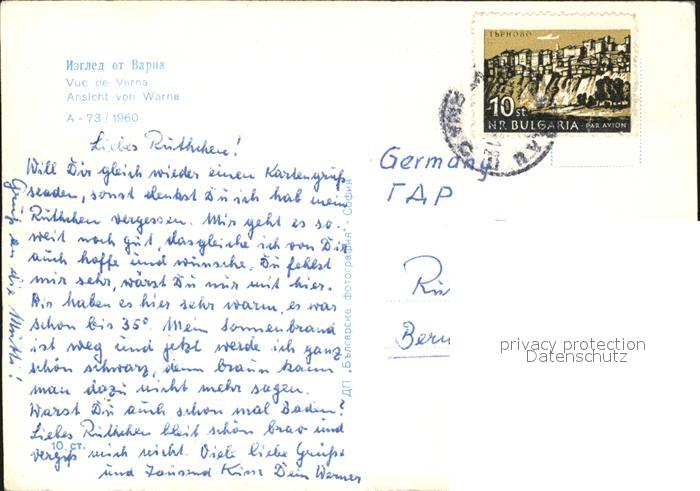 Изглед от Варна
Vue de Varna
Ansicht von Warna
А - 73 / 1960
Liebes Rüthchen!
Will Dir gleich wieder einen Kartengruß
senden, sonst denkst Du ich hab mein
Rüthchen vergessen. Mir geht es so-
weit noch gut, dasgleiche ich von Dir
auch hoffe und wünsche. Du fehlst
mir sehr, wärst Du nur mit hier.
Wir haben es hier sehr warm, es war
schon bis 35°. Mein Sonnenbrand
ist weg und jetzt werde ich ganz
schön schwarz, denn braun kann
man dazu nicht mehr sagen.
Warst Du auch schon mal Baden?
Liebes Rüthchen bleib schön brav und
vergiß mich nicht. Viele liebe Grüße
und Tausend Küsse Dein Werner
Gruß an die Mutti!
10 ст.
ДП "Българска фотография" - София
ТЪРНОВО
10 st.
N.R. BULGARIA - PAR AVION
Germany
ГДР
privacy protection
Datenschutz